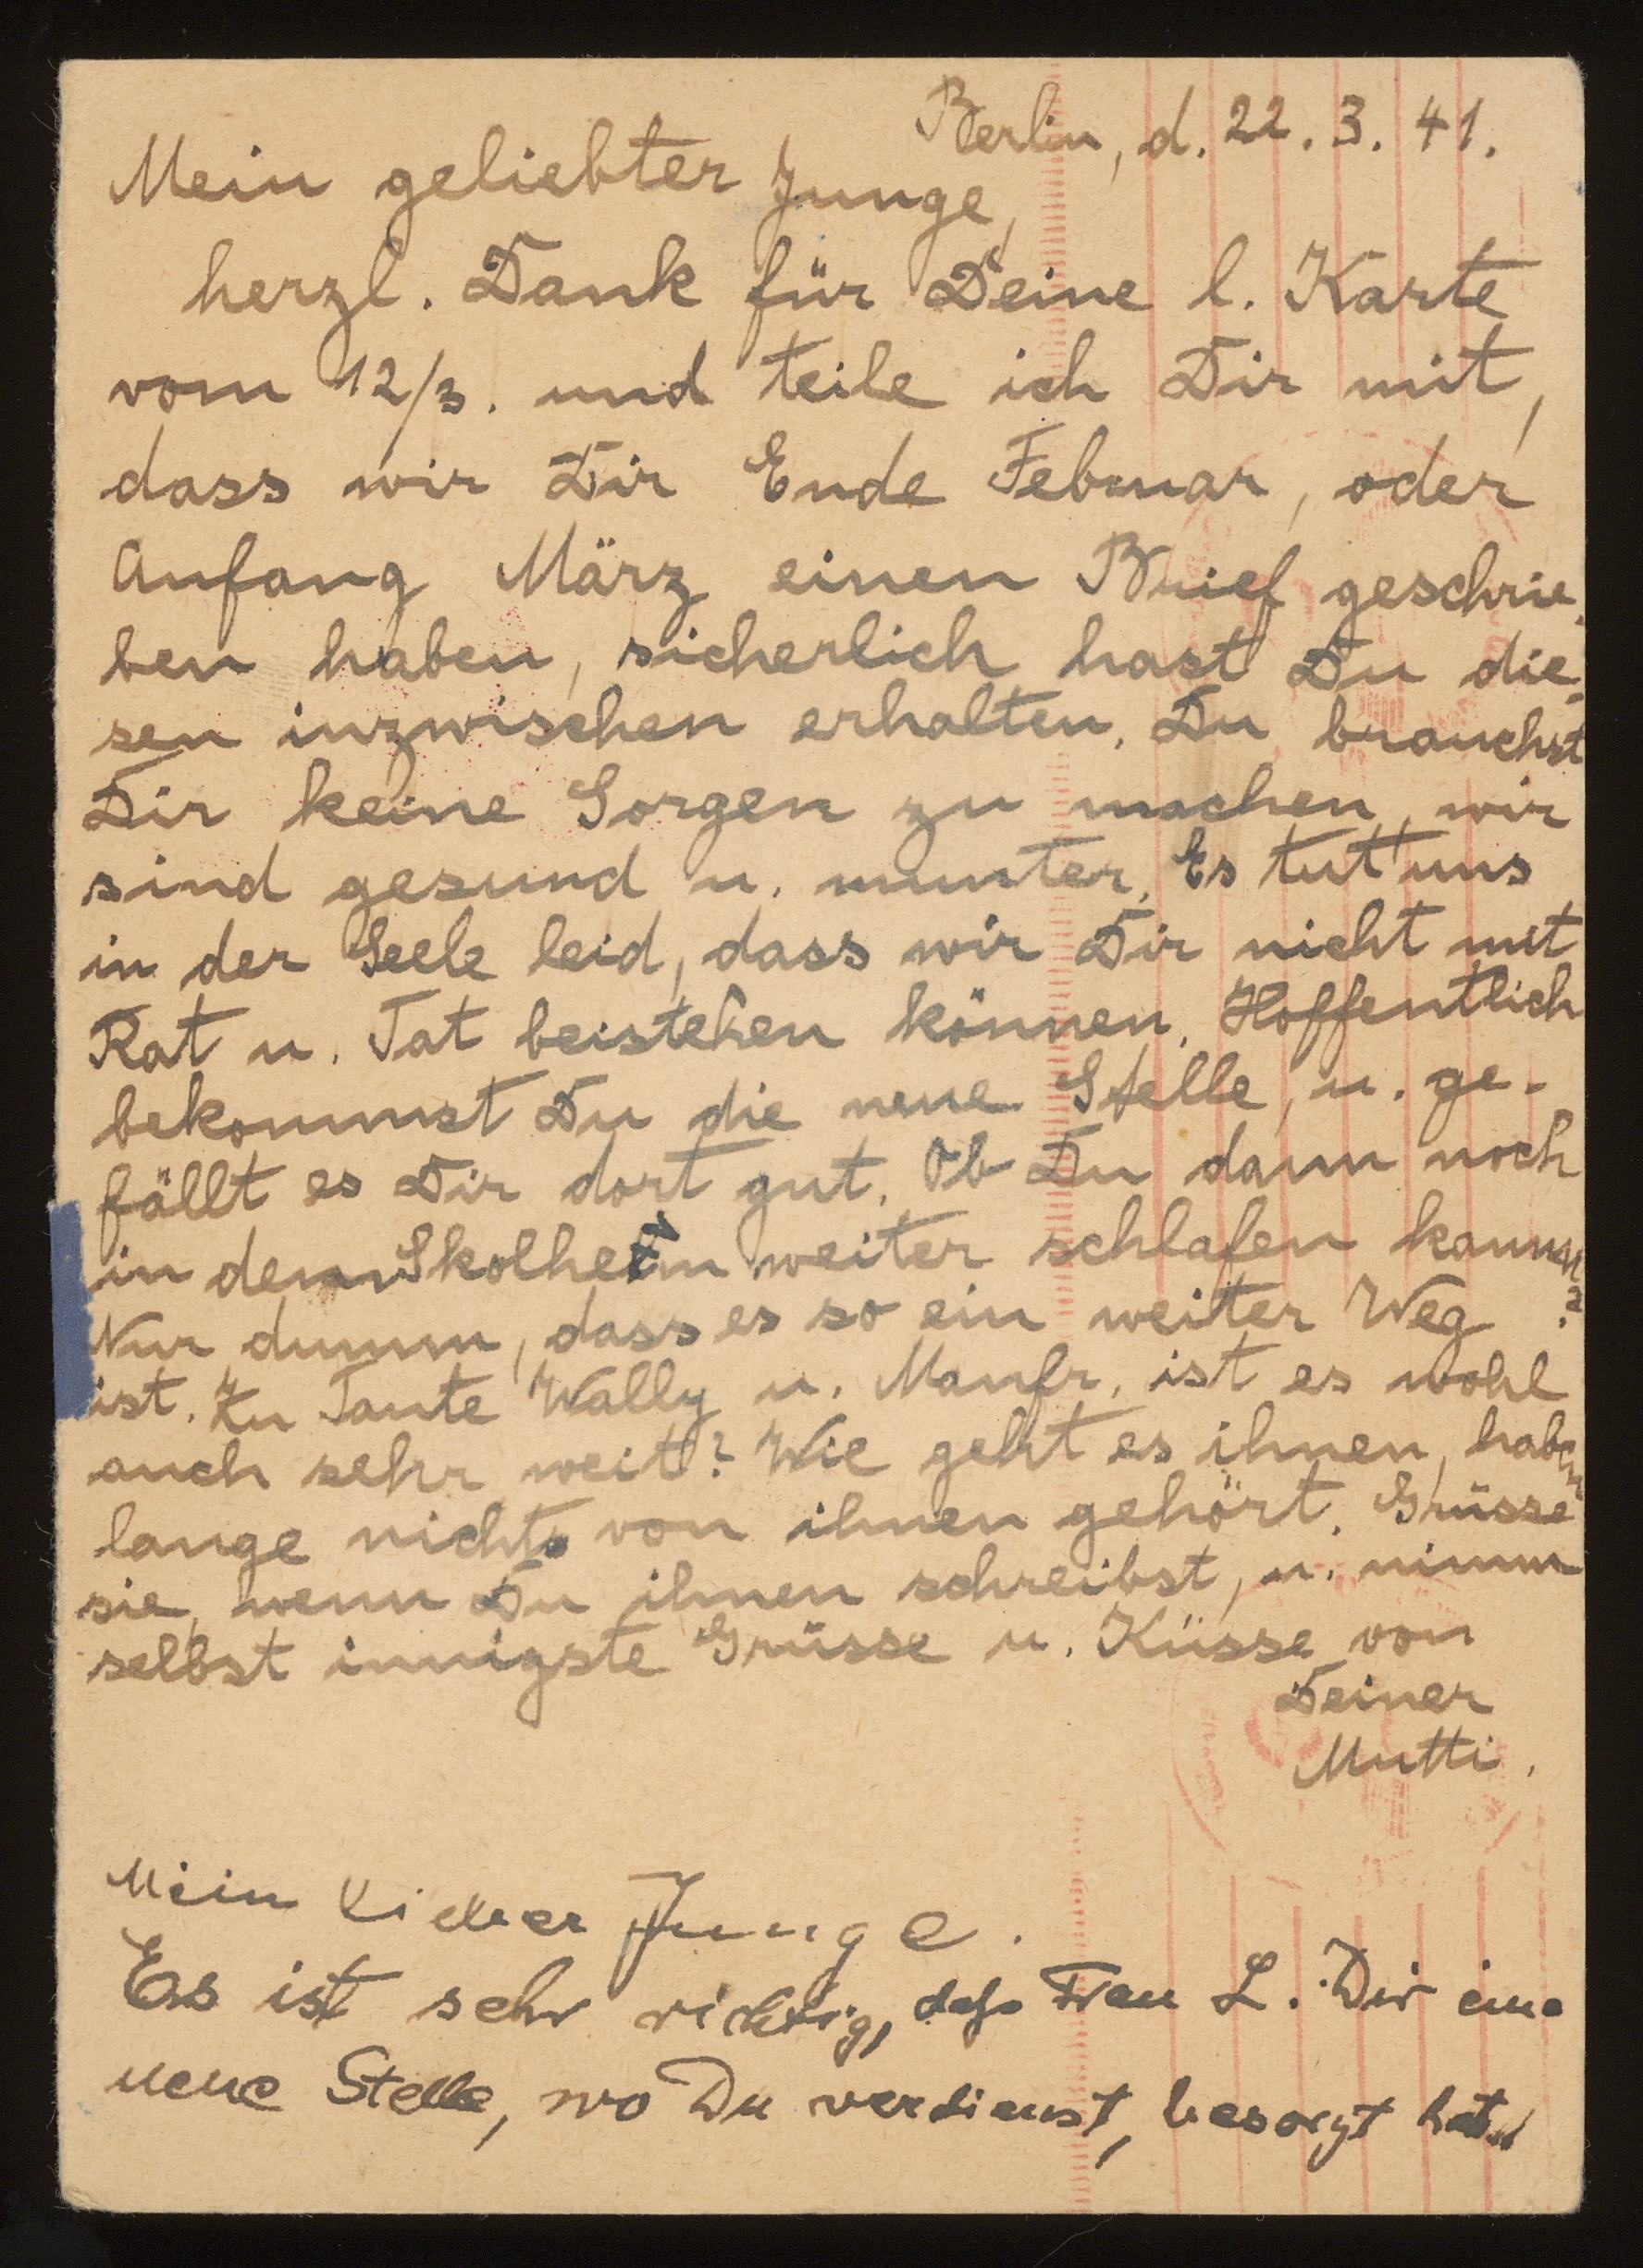 Berlin, d. 22. 3. 41.
Mein geliebter Junge,
herzl. Dank für Deine l. Karte
vom 12/3. und teile ich Dir mit,
dass wir Dir Ende Februar, oder
Anfang März einen Brief geschrie-
ben haben, sicherlich hast Du die-
sen inzwischen erhalten. Du brauchst
Dir keine Sorgen zu machen, wir
sind gesund u. munter. Es tut uns
in der Seele leid, dass wir Dir nicht mit
Rat u. Tat beistehen können. Hoffentlich
bekommst Du die neue Stelle, u. ge-
fällt es Dir dort gut. Ob Du dann noch
in dem Skolheim weiter schlafen kannst?
Nur dumm, dass es so ein weiter Weg
ist. Zu Tante Wally u. Manfr. ist es wohl
auch sehr weit? Wie geht es ihnen, haben
lange nichts von ihnen gehört. Grüsse
sie, wenn Du ihnen schreibst, u. nimm
selbst innigste Grüsse u. Küsse von
Deiner
Mutti.
Mein lieber Junge.
Es ist sehr richtig, daß Frau L. Dir eine
neue Stelle, wo Du verdienst, besorgt hat.